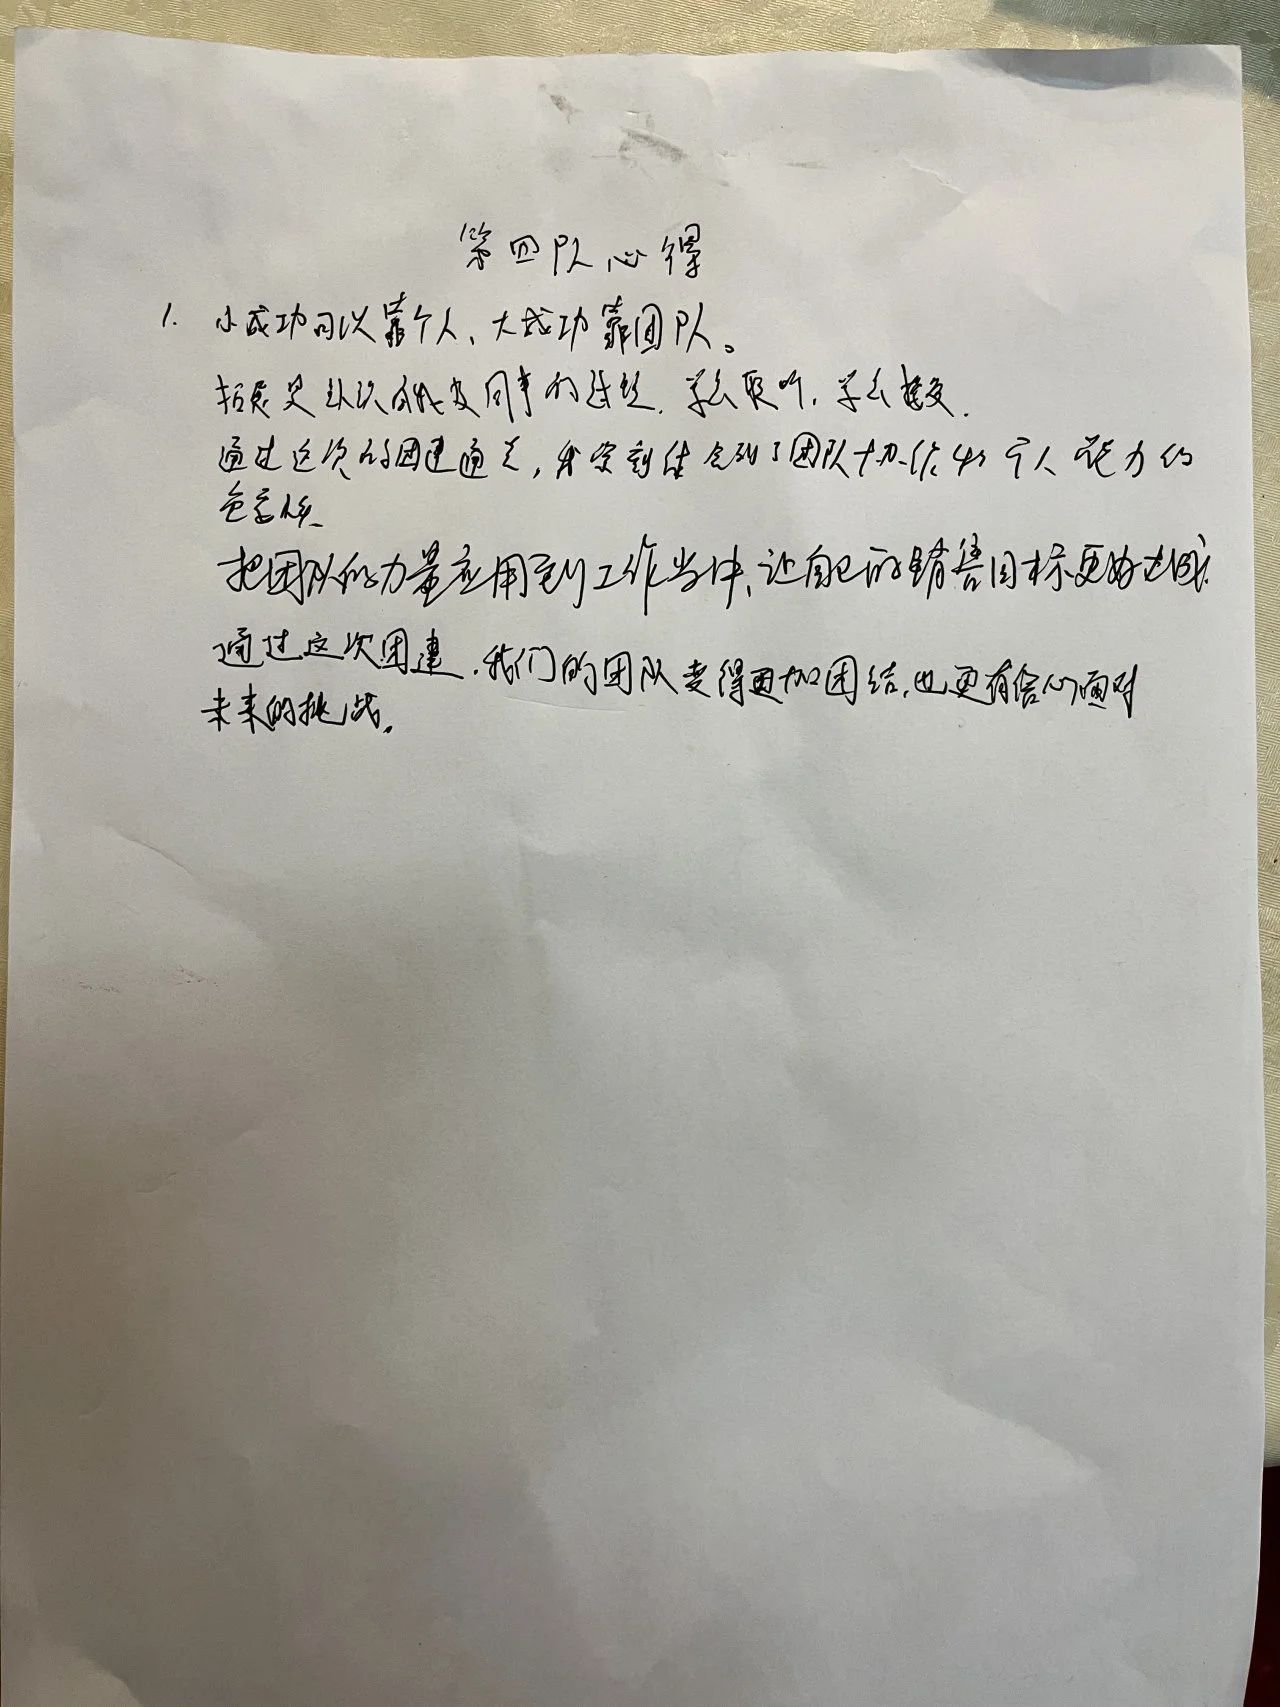 第四队心得
1. 小成功可以靠个人、大成功靠团队。
认识自我及同事的过程. 学会聆听, 学会接受.
通过这次的团建通关, 我深刻体会到了团队协作和个人能力的
把团队的力量应用到工作当中、让自己的销售目标更好达成.
通过这次团建. 我们的团队变得更加团结. 也更有信心面对
未来的挑战.